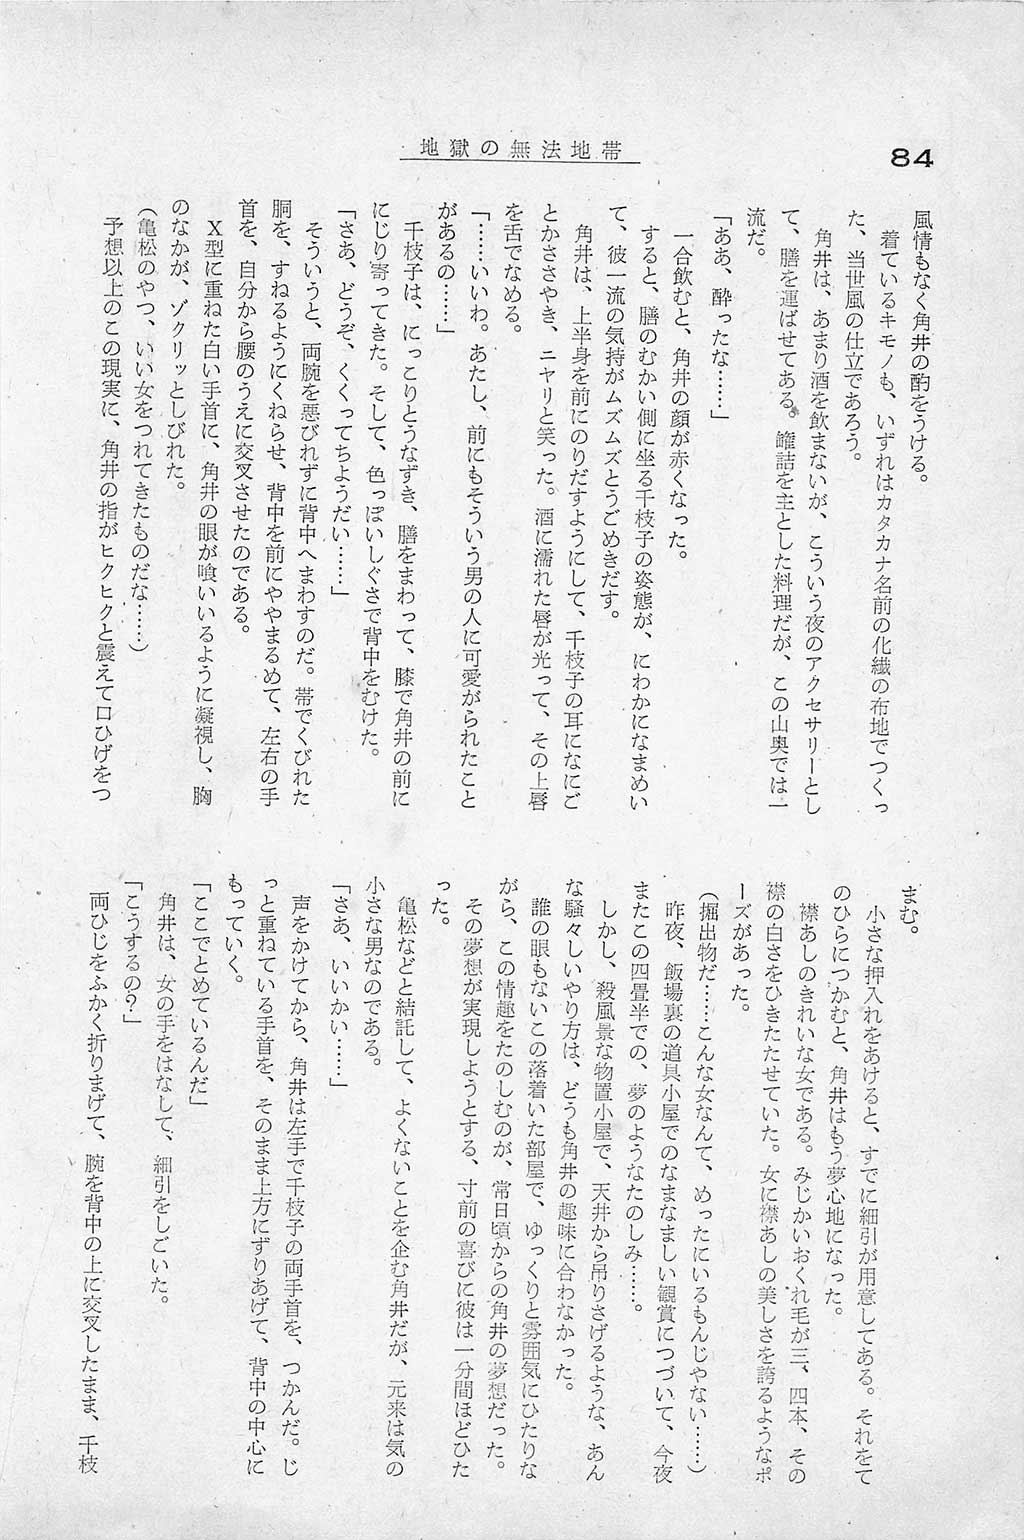 84
地獄の無法地帯
風情もなく角井の酌をうける。
着ているキモノも、いずれはカタカナ名前の化繊の布地でつくっ
た、当世風の仕立であろう。
角井は、あまり酒を飲まないが、こういう夜のアクセサリーとし
て、膳を運ばせてある。罐詰を主とした料理だが、この山奥では一
流だ。
「ああ、酔ったな……」
一合飲むと、角井の顔が赤くなった。
すると、膳のむかい側に坐る千枝子の姿態が、にわかになまめい
て、彼一流の気持がムズムズとうごめきだす。
角井は、上半身を前にのりだすようにして、千枝子の耳になにご
とかささやき、ニヤリと笑った。酒に濡れた唇が光って、その上唇
を舌でなめる。
「……いいわ。あたし、前にもそういう男の人に可愛がられたこと
があるの……」
千枝子は、にっこりとうなずき、膳をまわって、膝で角井の前に
にじり寄ってきた。そして、色っぽいしぐさで背中をむけた。
「さあ、どうぞ、くくってちようだい……」
そういうと、両腕を悪びれずに背中へまわすのだ。帯でくびれた
胴を、すねるようにくねらせ、背中を前にややまるめて、左右の手
首を、自分から腰のうえに交叉させたのである。
X型に重ねた白い手首に、角井の眼が喰いいるように凝視し、胸
のなかが、ゾクリッとしびれた。
（亀松のやつ、いい女をつれてきたものだな……）
予想以上のこの現実に、角井の指がヒクヒクと震えて口ひげをつ
まむ。
小さな押入れをあけると、すでに細引が用意してある。それをて
のひらにつかむと、角井はもう夢心地になった。
襟あしのきれいな女である。みじかいおくれ毛が三、四本、その
襟の白さをひきたたせていた。女に襟あしの美しさを誇るようなポ
ーズがあった。
（掘出物だ……こんな女なんて、めったにいるもんじゃない……）
昨夜、飯場裏の道具小屋でのなまなましい観賞につづいて、今夜
またこの四畳半での、夢のようなたのしみ……。
しかし、殺風景な物置小屋で、天井から吊りさげるような、あん
な騒々しいやり方は、どうも角井の趣味に合わなかった。
誰の眼もないこの落着いた部屋で、ゆっくりと雰囲気にひたりな
がら、この情趣をたのしむのが、常日頃からの角井の夢想だった。
その夢想が実現しようとする、寸前の喜びに彼は一分間ほどひた
った。
亀松などと結託して、よくないことを企む角井だが、元来は気の
小さな男なのである。
「さあ、いいかい……」
声をかけてから、角井は左手で千枝子の両手首を、つかんだ。じ
っと重ねている手首を、そのまま上方にずりあげて、背中の中心に
もっていく。
「ここでとめているんだ」
角井は、女の手をはなして、細引をしごいた。
「こうするの？」
両ひじをふかく折りまげて、腕を背中の上に交叉したまま、千枝